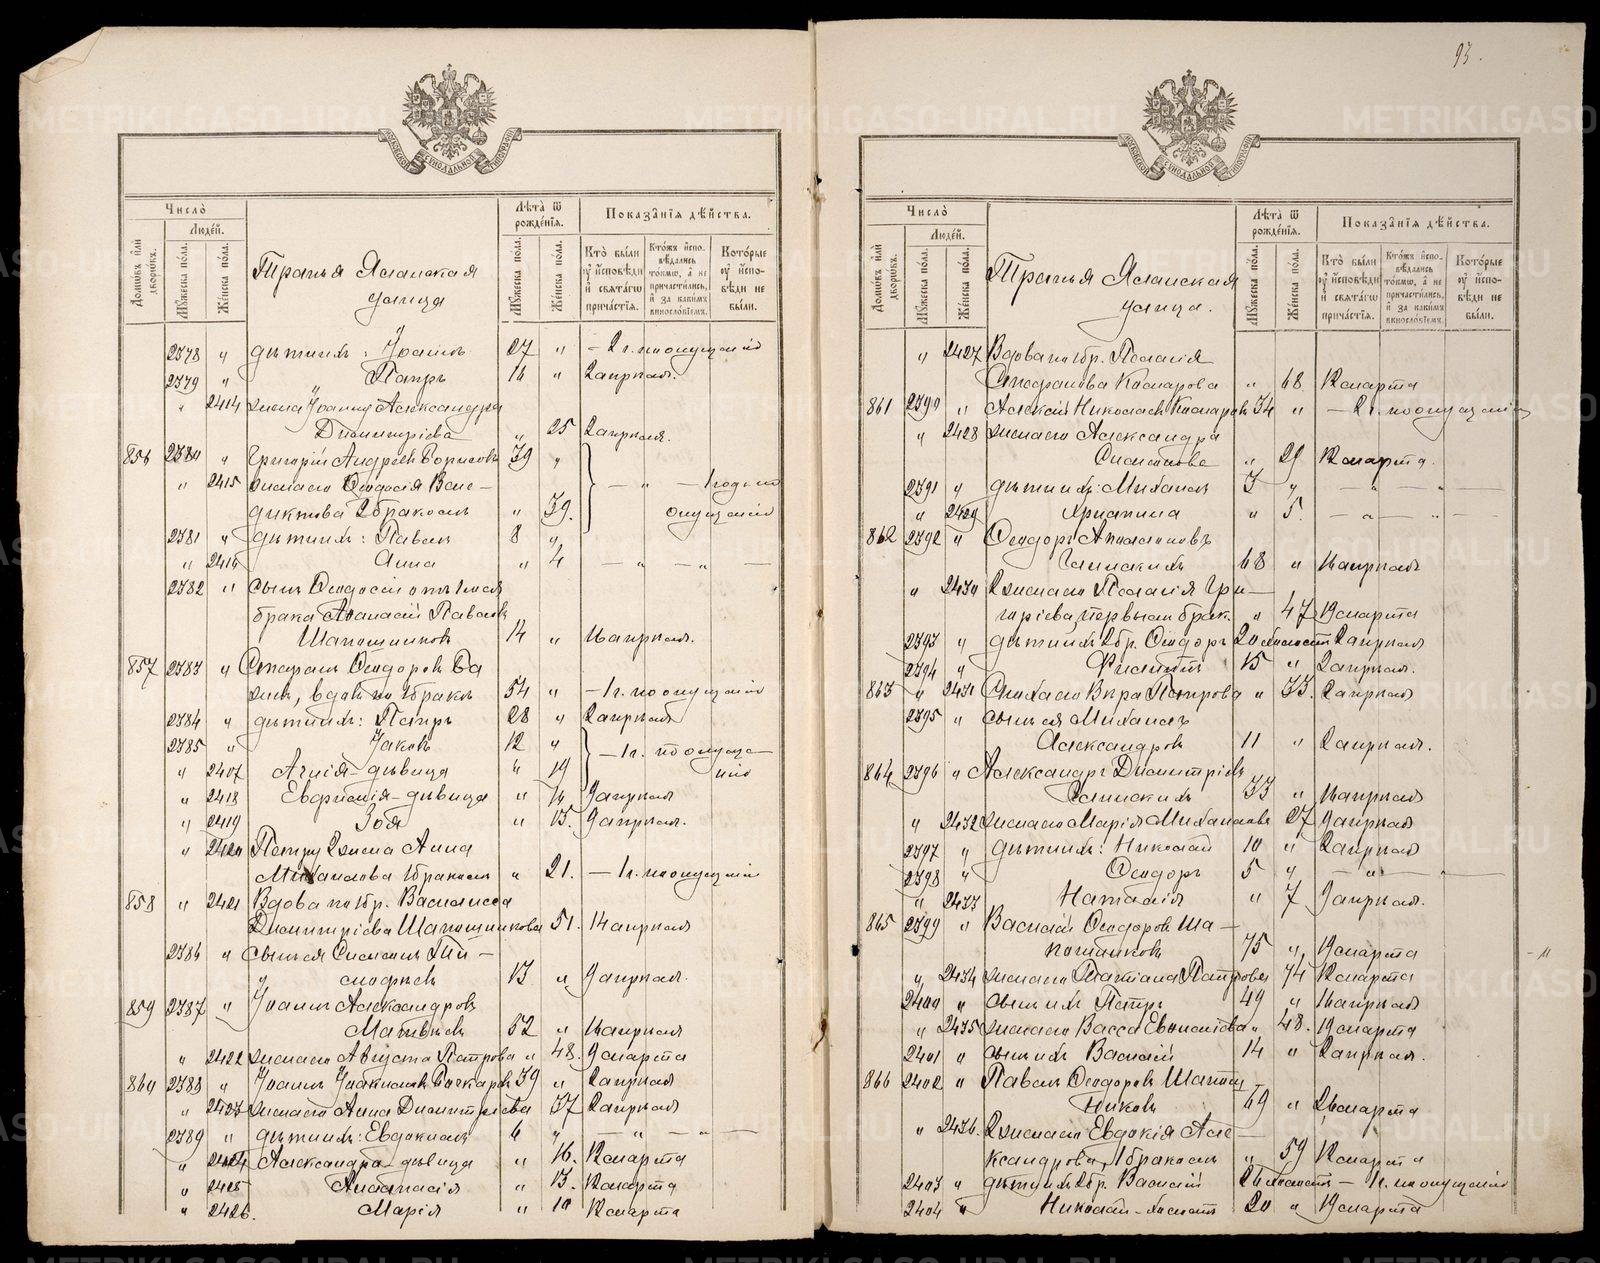 93.
Число̀
Люде́й.
Домѡ́въ и҆лѝ дворѡ́въ.
Мꙋ́жеска по́ла.
Же́нска по́ла.
Третья Ясанская
улица
Лѣ́та ѿ рожде́нїя.
Мꙋ́жеска по́ла.
Же́нска по́ла.
Показа̑нїя дѣ́йства.
Кто̀ бы́ли
ᲂу҆ и҆сповѣ́ди
и҆ свѧта́гѡ
причастїѧ.
Кто́жъ и҆спо-
вѣ́дались
то́кмѡ, а҆ не
причасти́лись,
и҆ за каки́мъ
винословїемъ.
Кото́рые
ᲂу҆ и҆спо-
вѣ́ди не
бы́ли.
2378 " дѣти ихъ: Іоаннъ 27 " – 2 г. по опущенію
2379 " Петръ 16 " 2 апрѣля.
" 2414 жена Іоанну Александра
Димитріева " 25 2 апрѣля.
856 2380 " Григорій Андреевъ Борисовъ 39 "
" 2415 жена его Ѳеодосія Вене-
диктова 2 бракомъ " 39. — " — 1 годъ по опущенію
2381 " дѣти ихъ: Павелъ 8 "
" 2416 Анна " 4 — " — " —
2382 " сынъ Ѳеодосіи отъ 1 мъ
брака Аѳанасій Павловъ
Шапошниковъ 14 " 16 апрѣля.
857 2383 " Стефанъ Ѳеодоровъ
вдовъ по 1 бракѣ 54 " – 1 г. по опущенію
2384 " дѣти ихъ: Петръ 28 " 2 апрѣля
2385 " Іаковъ 12 "
" 2407 Агнія – дѣвица " 19 – 1 г. по опуще-
нію
" 2418 Евфимія – дѣвица " 16 9 апрѣля
" 2419 Зоя " 13. 9 апрѣля.
" 2420 Петру 2 жена Анна
Михайлова 1 бракомъ " 21. – 1 г. по опущенію
858 " 2421 Вдова по 1 бр. Василисса
Димитріева Шапошникова 51. 14 апрѣля
2386 " сынъ ея Симеонъ Ти-
моѳеевъ 13 " 9 апрѣля.
859 2387 " Іоаннъ Александровъ
Матвѣевъ 52 " 16 апрѣля
" 2422 жена его Августа Петрова " 48. 9 марта
860 2388 " Іоаннъ 39 " 2 апрѣля
" 2423 жена его Анна Димитріева 37 2 апрѣля
2389 " дѣти ихъ: Евдокимъ 6 " — " — " —
" 2424 Александра – дѣвица " 16. 12 марта
" 2425 Анастасія " 13. 12 марта
" 2426. Марія " 10 12 марта
Число̀
Люде́й.
Домѡ́въ и҆лѝ дворѡ́въ.
Мꙋ́жеска по́ла.
Же́нска по́ла.
Третья Ясанская
улица.
Лѣ́та ѿ рожде́нїя.
Мꙋ́жеска по́ла.
Же́нска по́ла.
Показа̑нїя дѣ́йства.
Кто̀ бы́ли
ᲂу҆ и҆сповѣ́ди
и҆ свѧта́гѡ
причастїѧ.
Кто́жъ и҆спо-
вѣ́дались
то́кмѡ, а҆ не
причасти́лись,
и҆ за каки́мъ
винословїемъ.
Кото́рые
ᲂу҆ и҆спо-
вѣ́ди не
бы́ли.
" 2427 Вдова по 1 бр. Пелагія
Стефанова Комарова " 68 12 марта
861 2390 " Алексій Николаевъ Комаровъ 34 " – 2 г. по опущенію
" 2428 жена его Александра
Симеонова " 29 12 марта.
2391 " дѣти ихъ: Михаилъ 3 " — " — " —
" 2429 Христина " 5. — " — " —
862 2392 " Ѳеодоръ
68 " 16 апрѣля
" 2430 2 жена его Пелагія Гри-
горіева первымъ брак. " 47 12 марта
2393 " дѣти ихъ 2 бр. Ѳеодоръ 20 холостъ 2 апрѣля
2394 " Филиппъ 15 " 2 апрѣля.
863 " 2431 Вѣра Петрова " 33. 2 апрѣля
2395 " сынъ ея Михаилъ
Александровъ 11 " 2 апрѣля.
864 2396 " Александръ Димитріевъ
33 " 16 апрѣля
" 2432 жена его Марія Михайлова 27 9 апрѣля
2397 " дѣти ихъ: Николай 10 " 2 апрѣля
2398 " Ѳеодоръ 5 " — " — " —
" 2433 Наталія " 7 9 апрѣля.
865 2399 " Василій Ѳеодоровъ Ша-
пошниковъ 75 " 19 марта
" 2434 жена его Татіана Петрова 74 12 марта
2400 " сынъ ихъ Петръ 49 " 16 апрѣля
" 2435 жена его Васса Евфиміева " 48. 19 марта
2401 " сынъ ихъ Василій 14 " 2 апрѣля.
866 2402 " Павелъ Ѳеодоровъ Шапош
никовъ 69 " 26 марта
" 2436. 2 жена его Евдокія Але-
ксандрова, 1 бракомъ " 59 12 марта
2403 " дѣти ихъ 2 бр. Василій 26 холостъ – 1 г. по опущенію
2404 " Николай – холостъ 20 " 19 марта
METRIKI.GASO-URAL.RU